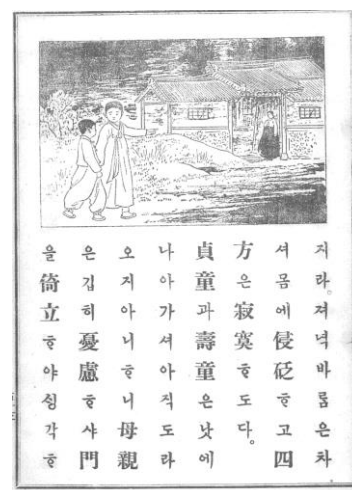 지라。져녁바룸은차
셔몸에侵砭ᄒᆞ고四
方은寂寞ᄒᆞ도다。
貞童과壽童은낫에
나아가셔아직도라
오지아니ᄒᆞ니母親
은깁히憂慮ᄒᆞ샤門
을倚立ᄒᆞ야ᄉᆡᆼ각ᄒᆞ